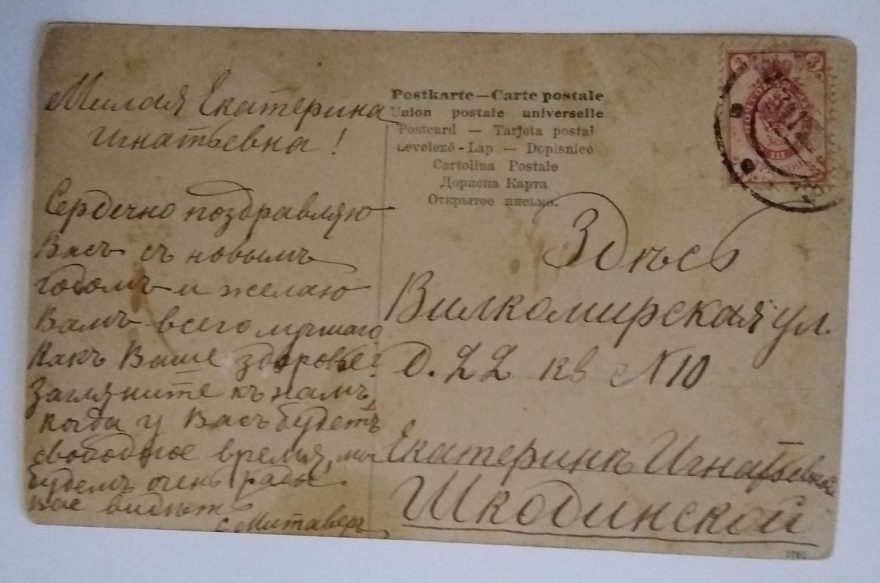 Милая Екатерина
Игнатьевна!
Сердечно поздравляю
Васъ съ новымъ
годомъ и желаю
Вамъ всего лучшаго
Какъ Ваше здоровье?
Загляните къ намъ,
когда у Васъ будетъ
свободное время, мы
будемъ очень рады
Вас видѣть
Postkarte — Carte postale
Union postale universelle
Postcard — Tarjeta postal
Levelező-Lap — Dopisnice
Cartolina Postale
Дописна Карта
Открытое письмо.
3
Здѣсь
Вилкомирская ул.
д. 22 кв N 10
Екатеринѣ Игнатьевнѣ
Шкодинской